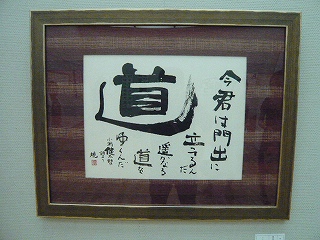 道
今君は門出に
立ってるんだ
遥かなる
道を
ゆくんだ